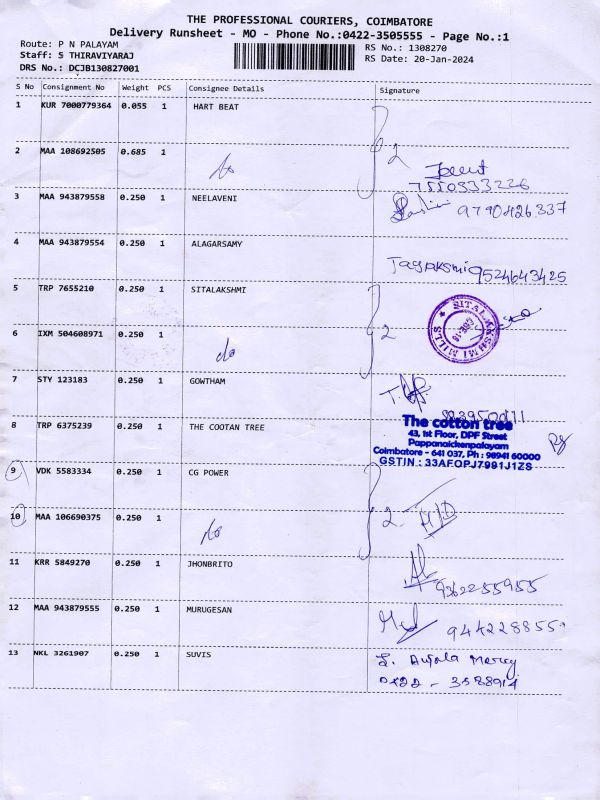 THE PROFESSIONAL COURIERS, COIMBATORE
Delivery Runsheet - MO - Phone No.:0422-3505555 - Page No.:1
Route: P N PALAYAM
Staff: S THIRAVIYARAJ
DRS No.: DCJB130827001
RS No.: 1308270
RS Date: 20-Jan-2024
S No Consignment No Weight PCS Consignee Details Signature
1 KUR 7000779364 0.055 1 HART BEAT
2 MAA 108692505 0.685 1 do 2
3 MAA 943879558 0.250 1 NEELAVENI 9790426337
4 MAA 943879554 0.250 1 ALAGARSAMY 9524643425
5 TRP 7655210 0.250 1 SITALAKSHMI
SITALAKSHMI MILLS
CBE-18
6 IXM 504608971 0.250 1 do 2
7 STY 123183 0.250 1 GOWTHAM
8 TRP 6375239 0.250 1 THE COOTAN TREE
The cotton tree
43, 1st Floor, DPF Street
Pappanaickenpalayam
Coimbatore - 641 037, Ph : 98941 60000
GSTIN : 33AFOPJ7991J1ZS
9 VDK 5583334 0.250 1 CG POWER
10 MAA 106690375 0.250 1 do 2
11 KRR 5849270 0.250 1 JHONBRITO
12 MAA 943879555 0.250 1 MURUGESAN
13 NKL 3261907 0.250 1 SUVIS